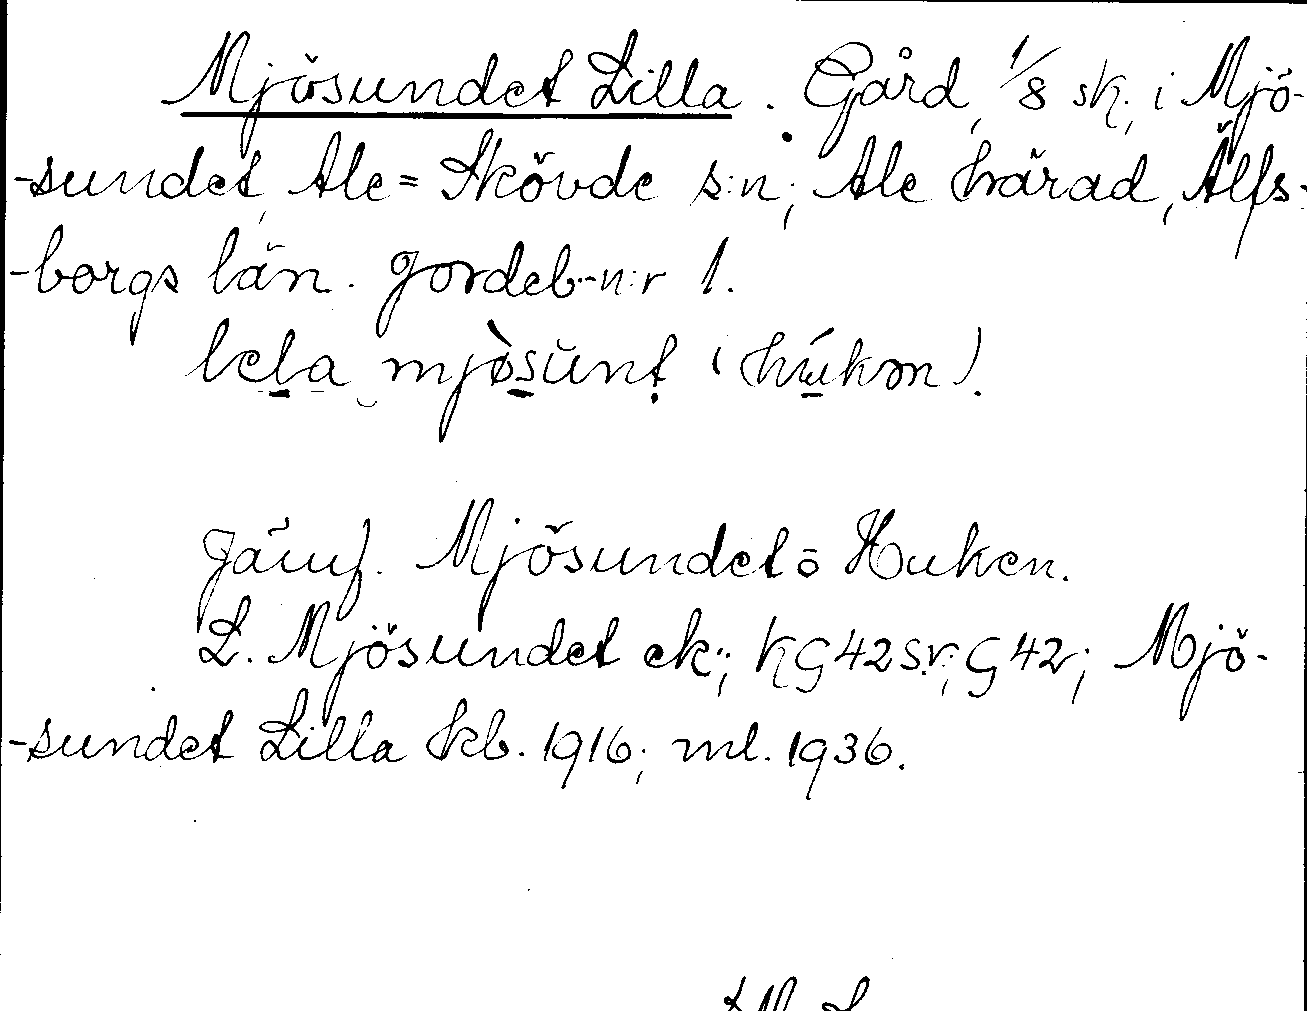 Mjösundet Lilla. Gård, 1/8 sk. i Mjö-
-sundet, Ale=Skövde s:n; Ale härad, Älfs-
-borgs län. Jordeb.-n:r 1.
lela mjòsŭnt (húkən).
Jämf. Mjösundet= Huken.
L. Mjösundet ek.; KG42Sv; G42; Mjö-
-sundet Lilla kb. 1916; ml. 1936.